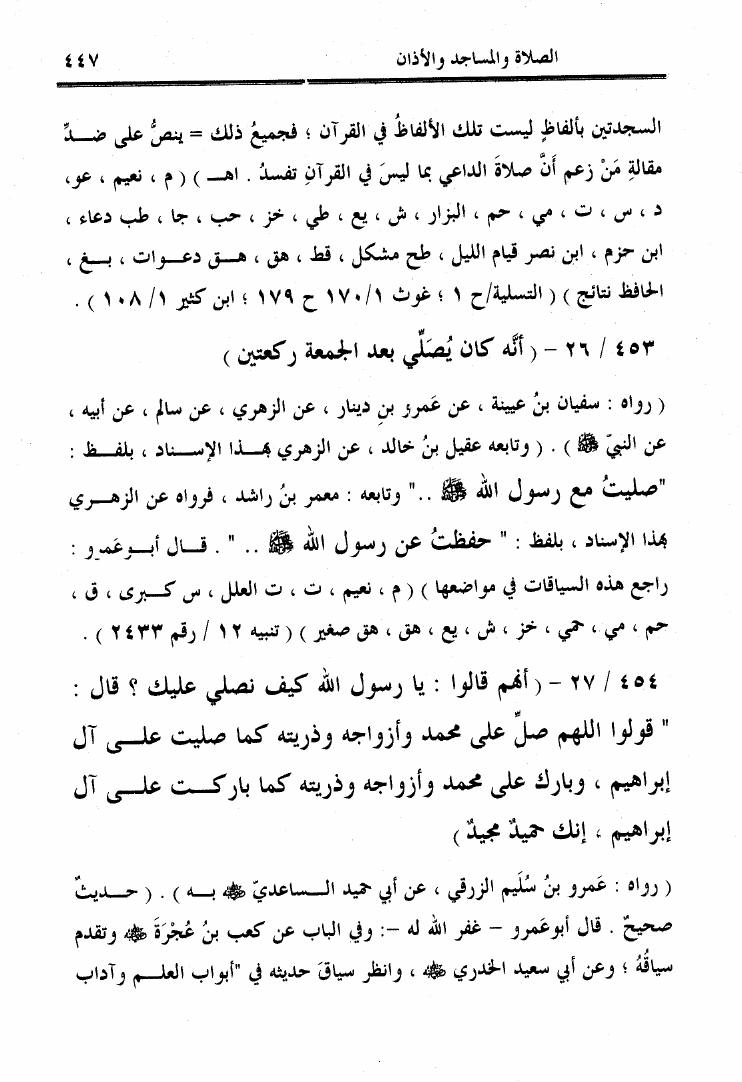 الصلاة والمساجد والأذان ٤٤٧
السجدتين بألفاظٍ ليست تلك الألفاظُ في القرآن ؛ فجميعُ ذلك = ينصُّ على ضدِّ
مقالةِ مَنْ زعم أنَّ صلاةَ الداعي بما ليسَ في القرآنِ تفسدُ . اهـ ) ( م ، نعيم ، عو،
د ، س ، ت ، مي ، حم ، البزار ، ش ، يع ، طي ، خز ، حب ، جا ، طب دعاء ،
ابن حزم ، ابن نصر قيام الليل ، طح مشكل ، قط ، هق ، هق دعوات ، بغ ،
الحافظ نتائج ) ( التسلية/ح ١ ؛ غوث ١٧٠/١ ح ١٧٩ ؛ ابن كثير ١/ ١٠٨ ) .
٤٥٣ / ٢٦ - ( أنَّه كان يُصَلِّي بعد الجمعة ركعتين )
( رواه : سفيان بنُ عيينة ، عن عَمرو بنِ دينار ، عن الزهري ، عن سالم ، عن أبيه ،
عن النبيّ ﷺ ) . ( وتابعه عقيل بنُ خالد ، عن الزهري بهذا الإسناد ، بلفظ :
"صليتُ مع رسول الله ﷺ .." وتابعه : معمر بنُ راشد ، فرواه عن الزهري
بهذا الإسناد ، بلفظ : " حفظتُ عن رسول الله ﷺ .. " . قال أبوعَمرو :
راجع هذه السياقات في مواضعها ) ( م ، نعيم ، ت ، ت العلل ، س كبرى ، ق ،
حم ، مي ، حمي ، خز ، ش ، يع ، هق ، هق صغير ) ( تنبيه ١٢ / رقم ٢٤٣٣ ) .
٤٥٤ / ٢٧ - ( أنهم قالوا : يا رسول الله كيف نصلي عليك ؟ قال :
" قولوا اللهم صلِّ على محمد وأزواجه وذريته كما صليت على آل
إبراهيم ، وبارك على محمد وأزواجه وذريته كما باركت على آل
إبراهيم ، إنك حميدٌ مجيدٌ )
( رواه : عَمرو بنُ سُليم الزرقي ، عن أبي حميد الساعديّ ﷺ به ) . ( حديثٌ
صحيحٌ . قال أبوعَمرو - غفر الله له -: وفي الباب عن كعب بنُ عُجْرَةَ ﷺ وتقدم
سياقُهُ ؛ وعن أبي سعيد الخدري ﷺ ، وانظر سياقَ حديثه في "أبواب العلم وآداب